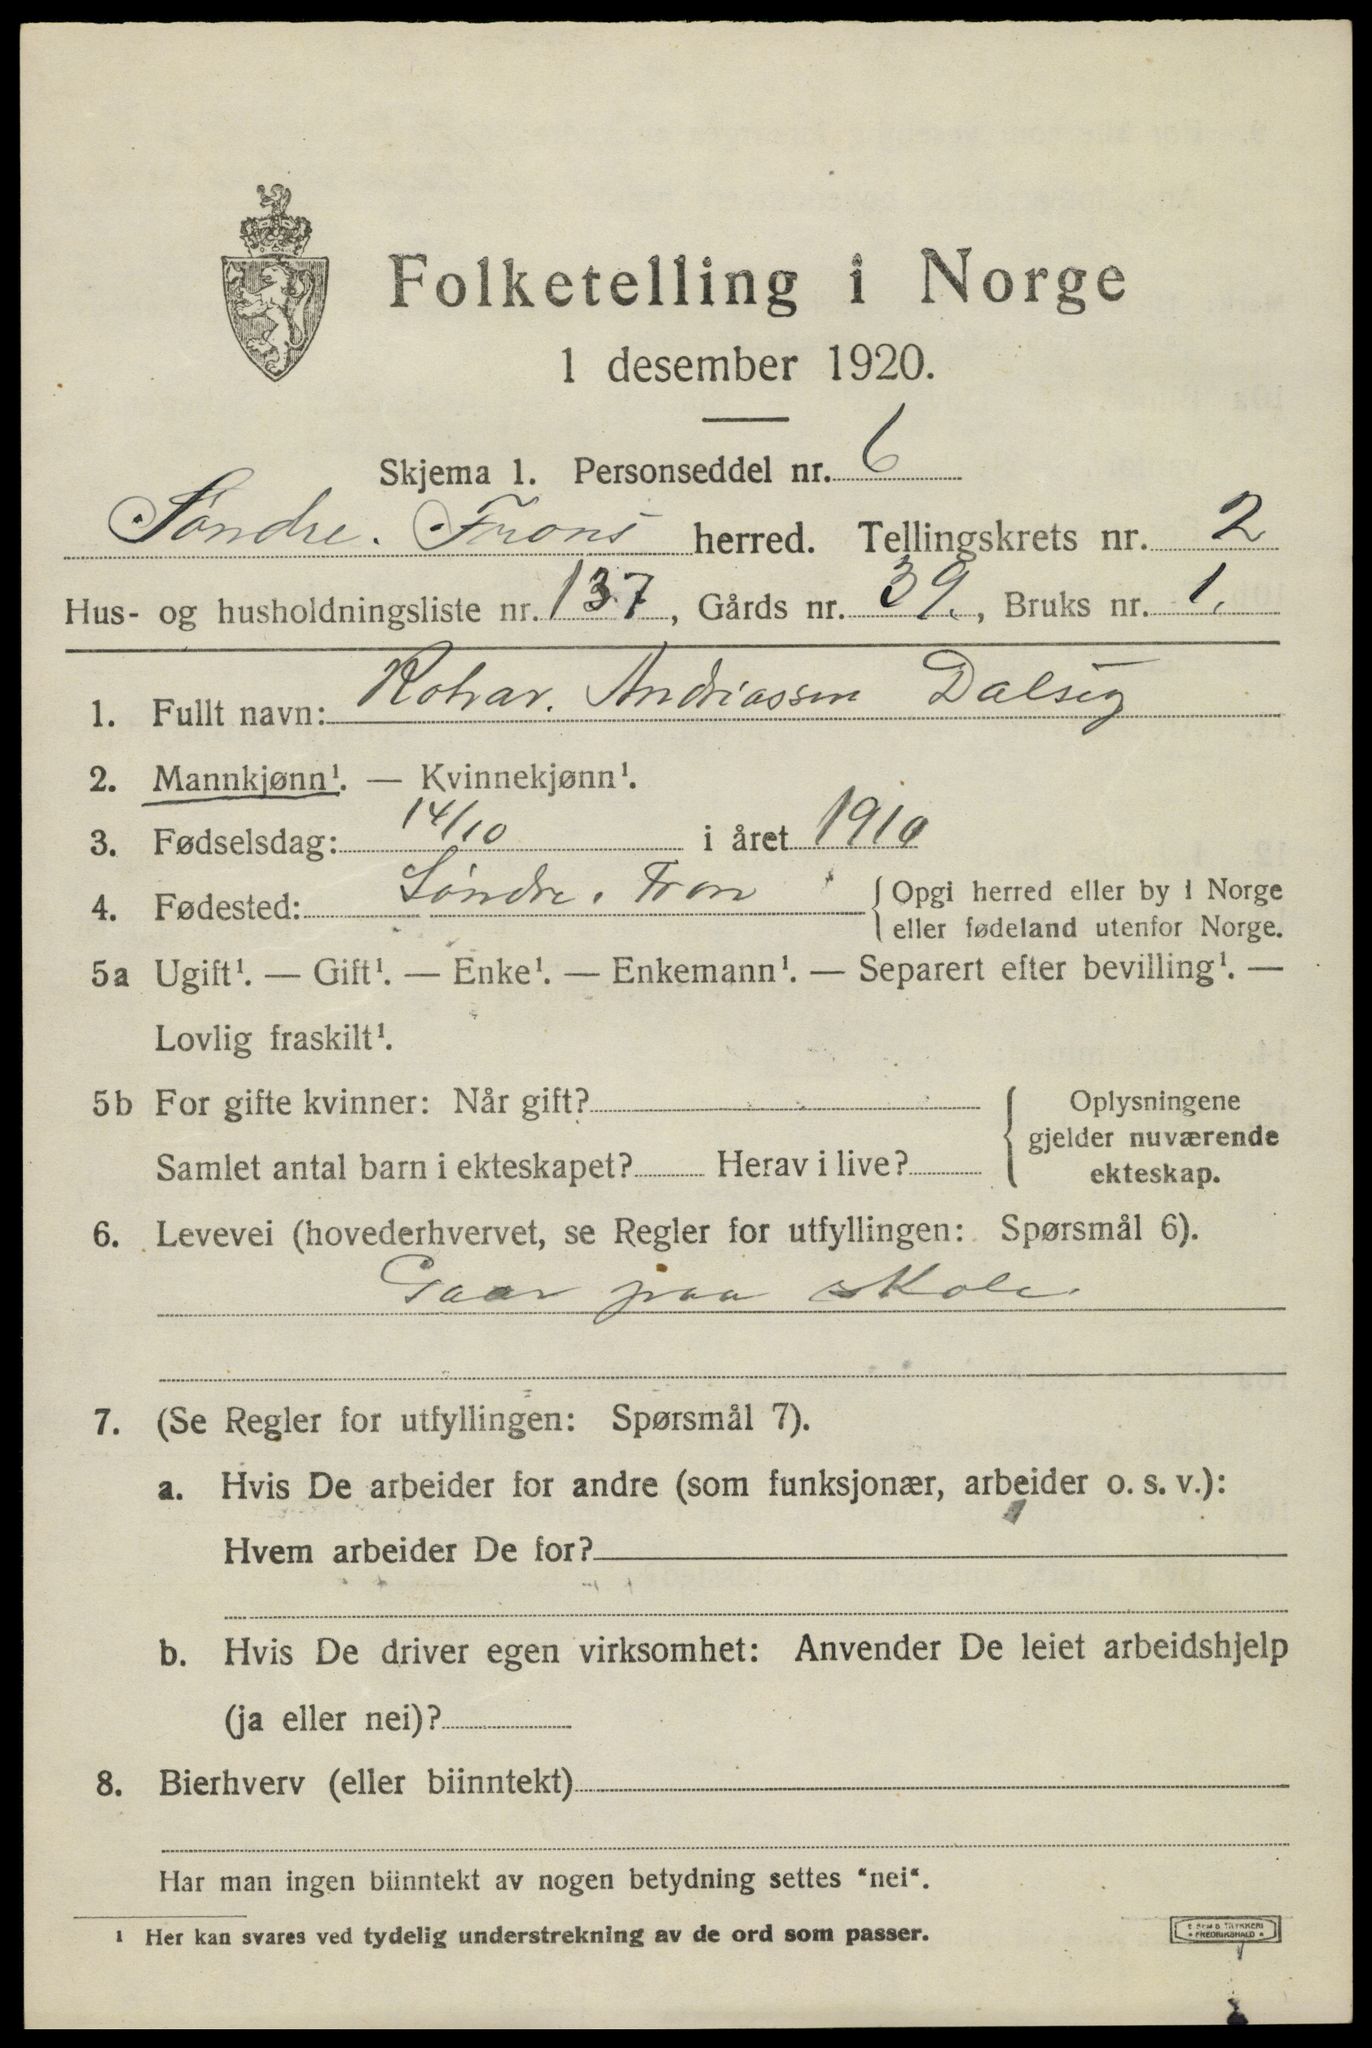 Folketelling i Norge
1 desember 1920.
Skjema 1. Personseddel nr. 6
Søndre. Frons herred. Tellingskrets nr. 2
Hus- og husholdningsliste nr. 137, Gårds nr. 39., Bruks nr. 1.
1. Fullt navn: Andriassen Dalseg
2. Mannkjønn¹. — Kvinnekjønn¹.
3. Fødselsdag: 14/10 i året 1910
4. Fødested: Søndre. Fron { Opgi herred eller by i Norge
eller fødeland utenfor Norge.
5a Ugift¹. — Gift¹. — Enke¹. — Enkemann¹. — Separert efter bevilling¹. —
Lovlig fraskilt¹.
5b For gifte kvinner: Når gift? { Oplysningene
gjelder nuværende
Samlet antal barn i ekteskapet? Herav i live? ekteskap.
6. Levevei (hovederhvervet, se Regler for utfyllingen: Spørsmål 6).
Gaar paa skole.
7. (Se Regler for utfyllingen: Spørsmål 7).
a. Hvis De arbeider for andre (som funksjonær, arbeider o. s. v.):
Hvem arbeider De for?
b. Hvis De driver egen virksomhet: Anvender De leiet arbeidshjelp
(ja eller nei)?
8. Bierhverv (eller biinntekt)
Har man ingen biinntekt av nogen betydning settes “nei“.
¹ Her kan svares ved tydelig understrekning av de ord som passer.
FREDRIKSHALD